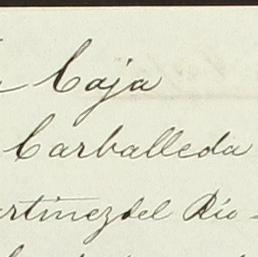 Caja
Carballeda
artinez del Rio -